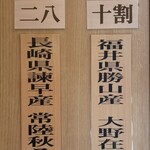 十割
福井県勝山産 大野在
二八
長崎県諫早産 常陸秋